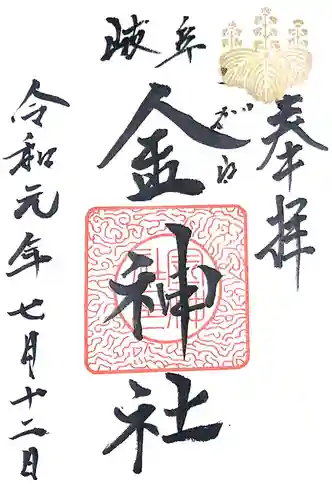 奉拝
岐阜
こがね
金神社
令和元年七月十二日